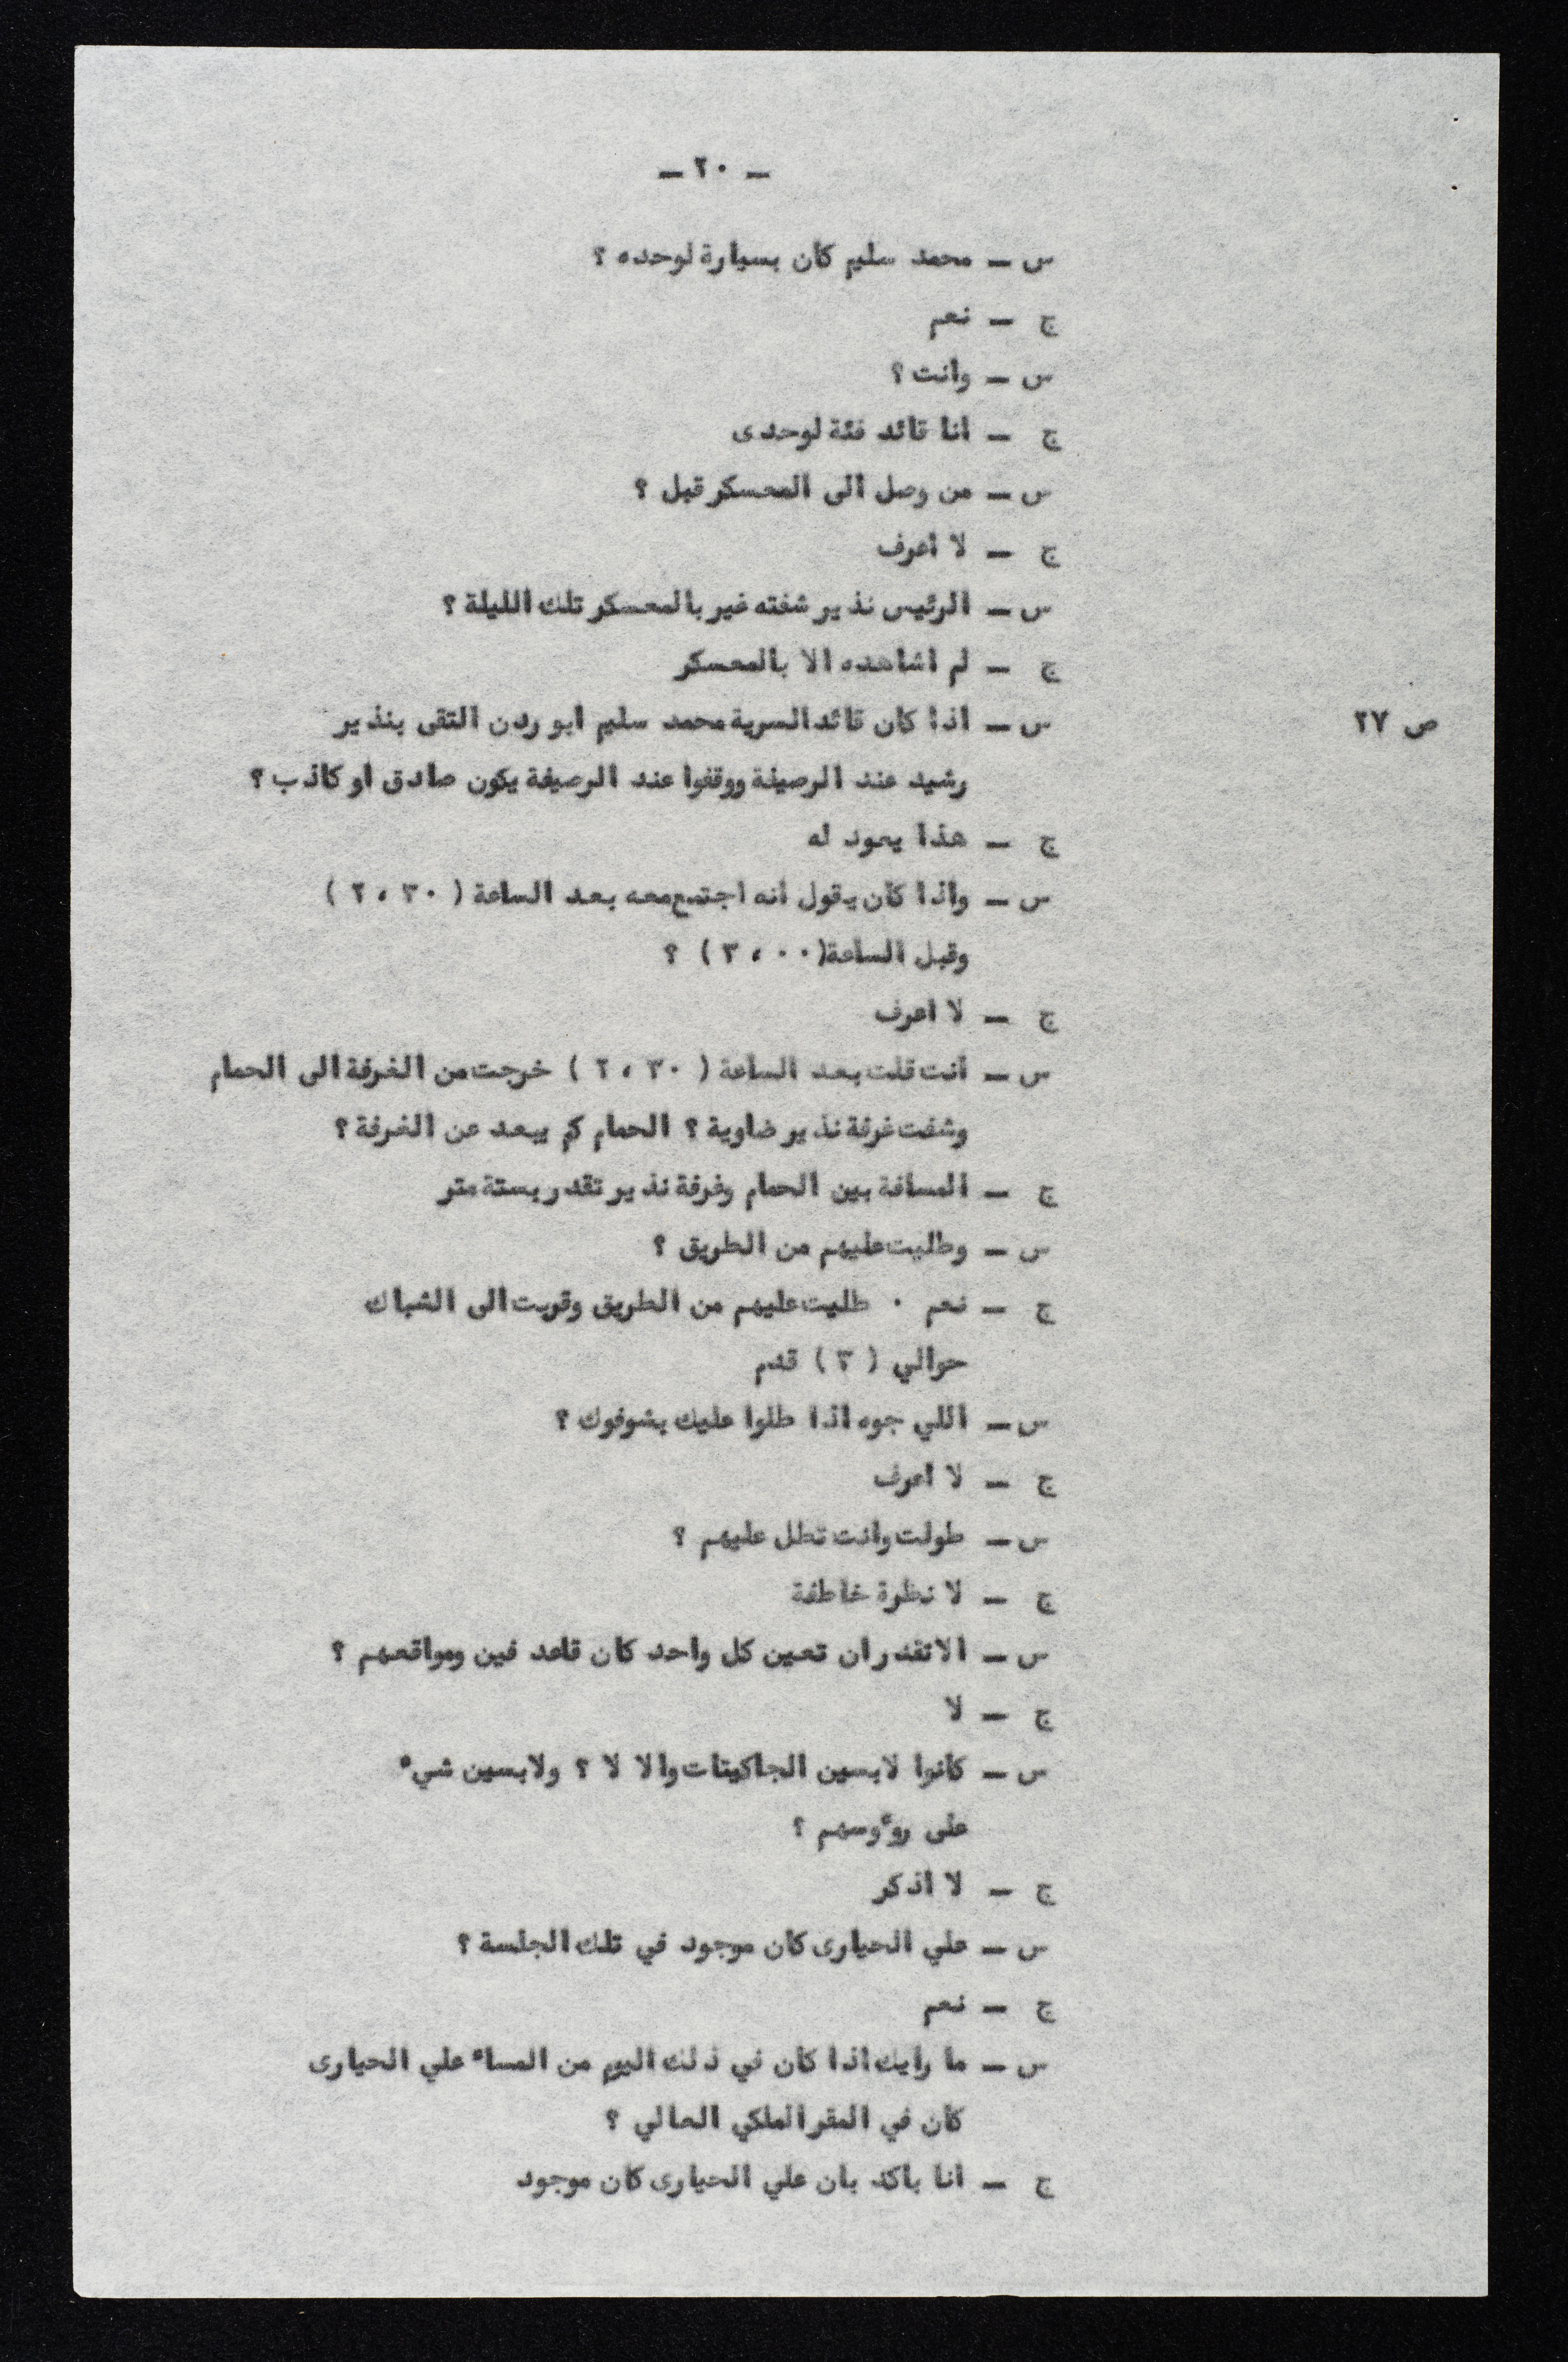 — ٢٠ —
س — محمد سليم كان بسيارة لوحده ؟
ج — نعم
س — وانت ؟
ج — انا قائد فئة لوحدى
س — من وصل الى المعسكر قبل ؟
ج — لا أعرف
س — الرئيس نذير شفته غير بالمعسكر تلك الليلة ؟
ج — لم اشاهده الا بالمعسكر
ص ٢٧ س — اذا كان قائد السرية محمد سليم ابو ردن التقى بنذير
رشيد عند الرصيفة ووقفوا عند الرصيفة يكون صادق او كاذب ؟
ج — هذا يعود له
س — واذا كان يقول أنه اجتمع معه بعد الساعة ( ٢،٣٠ )
وقبل الساعة( ٣،٠٠ ) ؟
ج — لا اعرف
س — أنت قلت بعد الساعة ( ٢،٣٠ ) خرجت من الغرفة الى الحمام
وشفت غرفة نذير ضاوية ؟ الحمام كم يبعد عن الغرفة ؟
ج — المسافة بين الحمام وغرفة نذير تقدر بستة متر
س — وطليت عليهم من الطريق ؟
ج — نعم ٠ طليت عليهم من الطريق وقربت الى الشباك
حوالي ( ٣ ) قدم
س — اللي جوه اذا طلوا عليك بشوفوك ؟
ج — لا اعرف
س — طولت وانت تطل عليهم ؟
ج — لا نظرة خاطفة
س — الا تقدر ان تعين كل واحد كان قاعد فين ومواقعهم ؟
ج — لا
س — كانوا لابسين الجاكيتات والا لا ؟ ولابسين شيء
على روءوسهم ؟
ج — لا اذكر
س — علي الحيارى كان موجود في تلك الجلسة ؟
ج — نعم
س — ما رايك اذا كان في ذلك اليوم من المساء علي الحيارى
كان في المقر الملكي الحالي ؟
ج — انا باكد بان علي الحيارى كان موجود